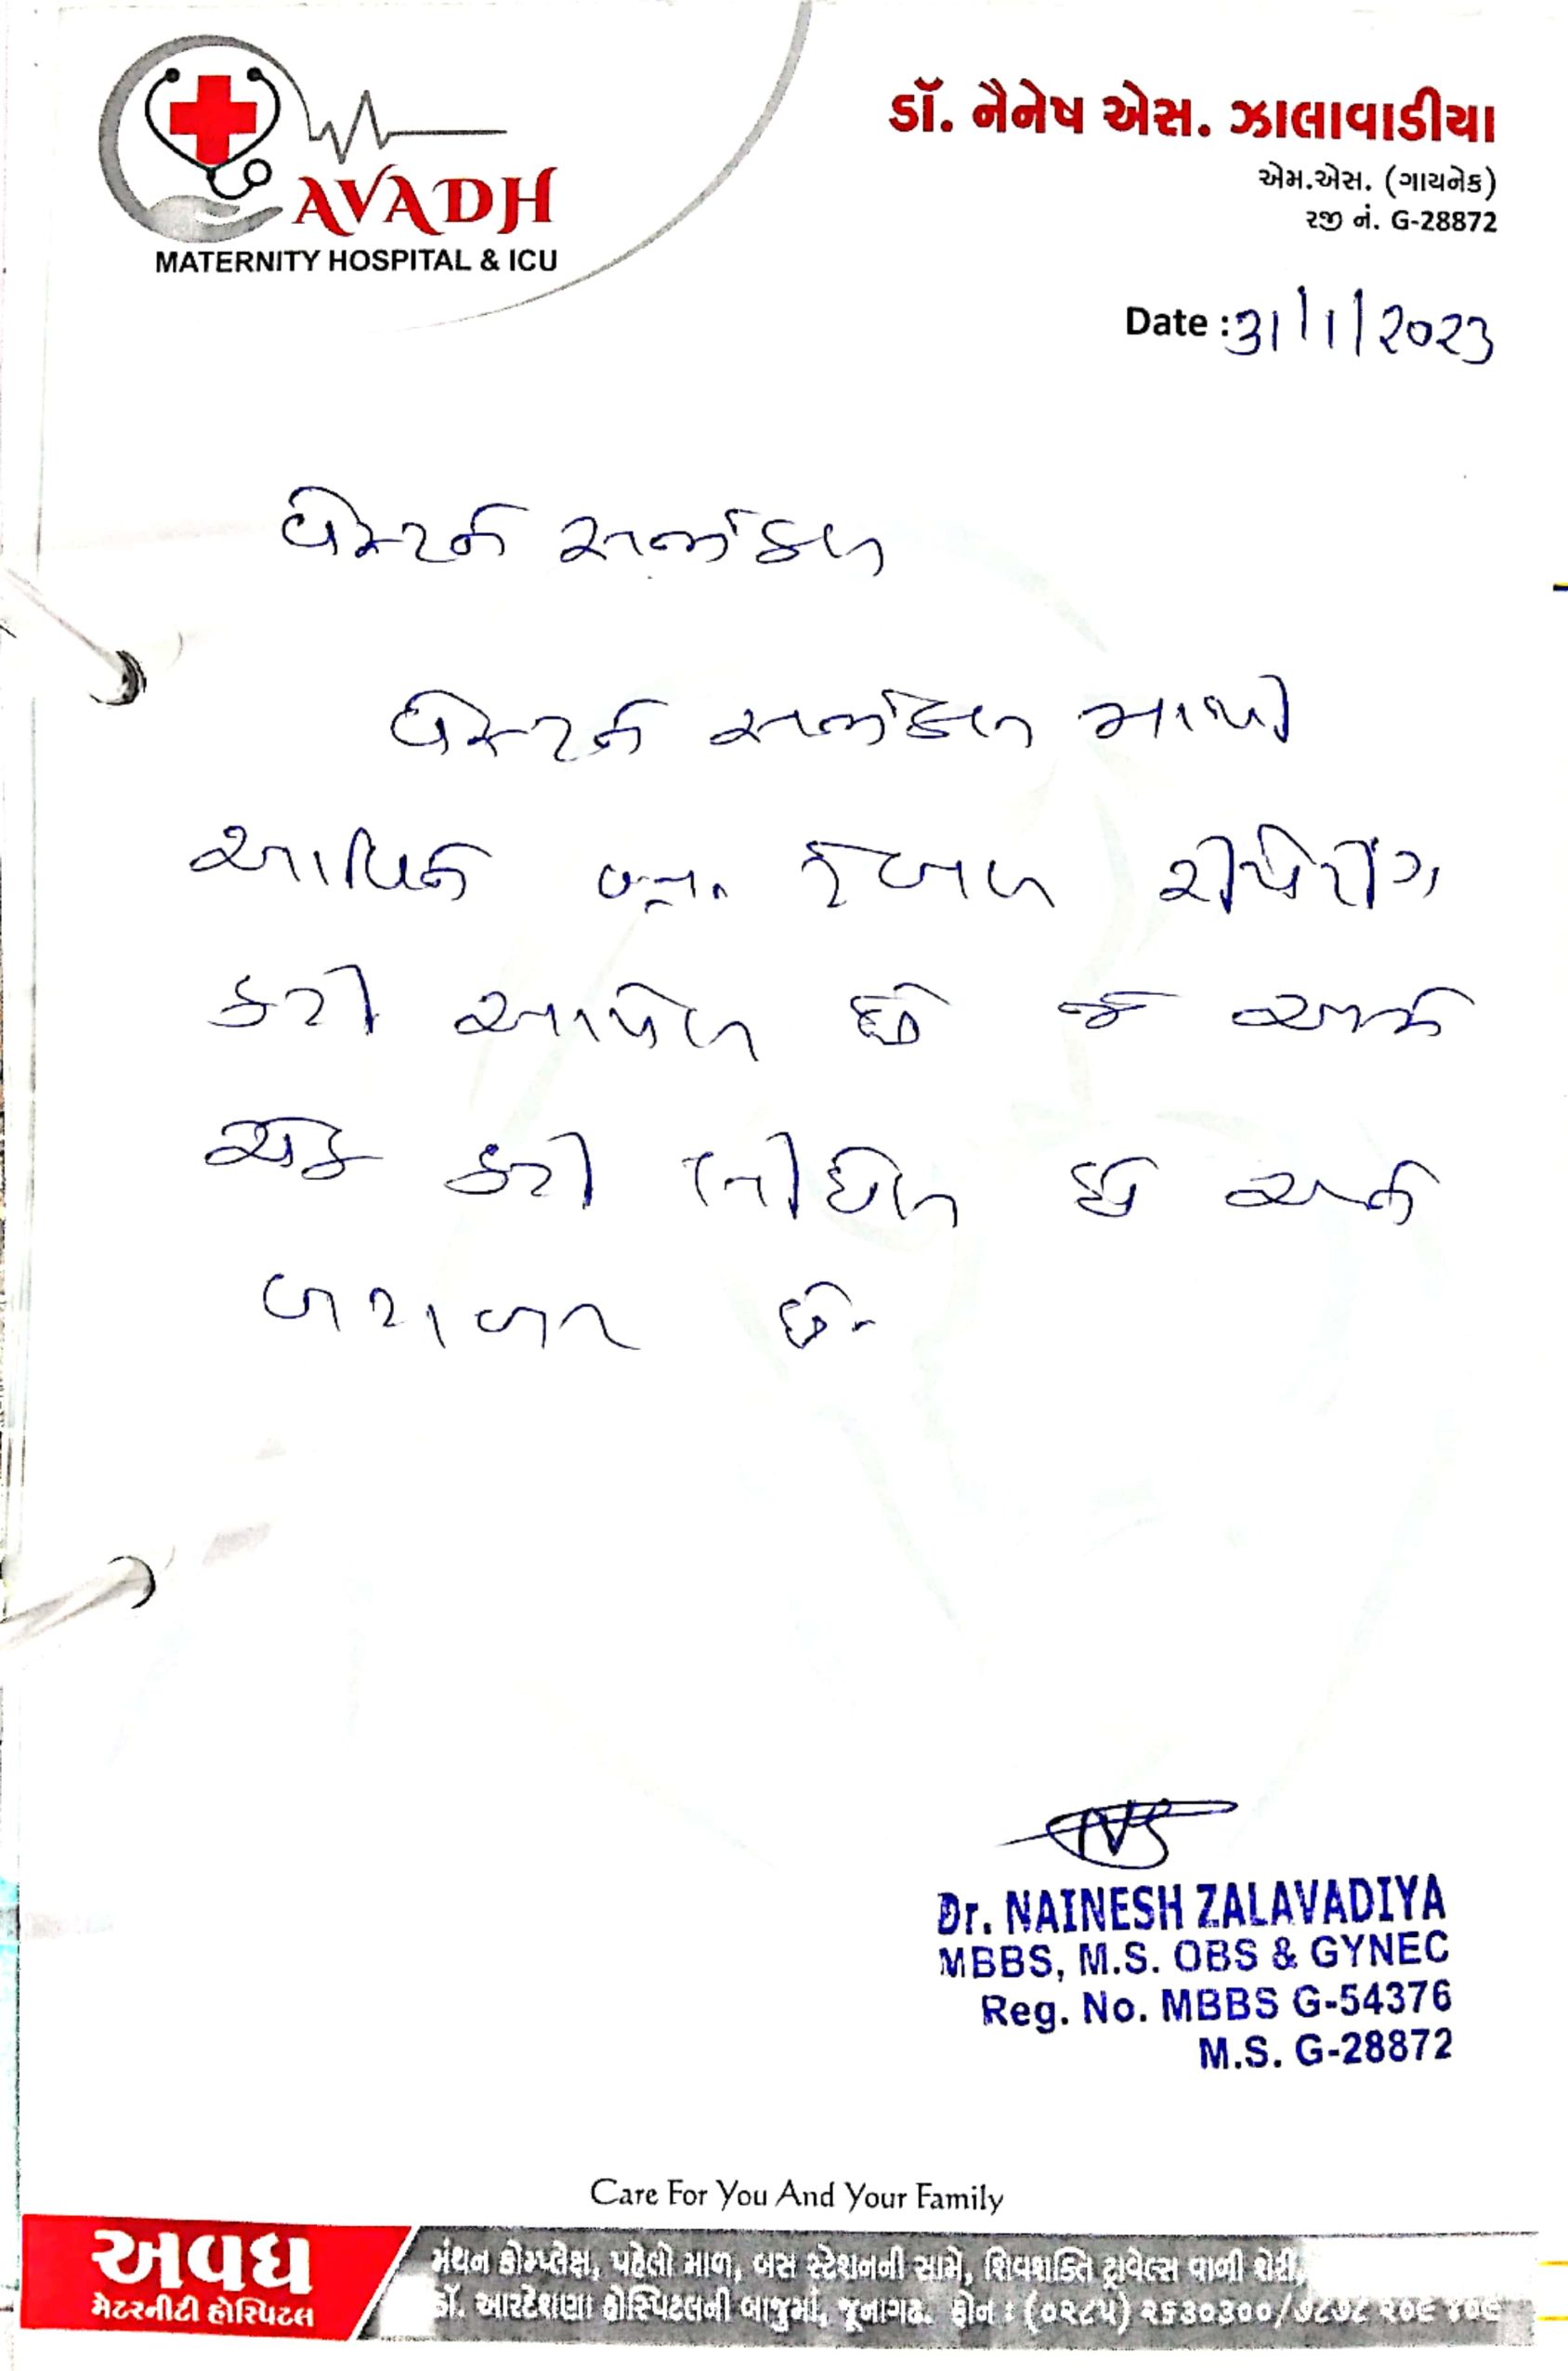 AVADH
MATERNITY HOSPITAL & ICU
ડૉ. નૈનેષ એસ. ઝાલાવાડીયા
એમ.એસ. (ગાયનેક)
રજી નં. G-28872
Date : 31/1/2023
વેસ્ટર્ન સર્જીકલ
વેસ્ટર્ન સર્જીકલ માથી
આવિને રીપેરીંગ
કરી આપેલ છે જે અમે
ચેક કરી લીધેલ છે અને
બરાબર છે.
Dr. NAINESH ZALAVADIYA
MBBS, M.S. OBS & GYNEC
Reg. No. MBBS G-54376
M.S. G-28872
Care For You And Your Family
અવધ
મેટરનીટી હોસ્પિટલ
મંથન કોમ્પ્લેક્ષ, પહેલો માળ, બસ સ્ટેશનની સામે, શિવશક્તિ ટ્રાવેલ્સ વાળી શેરી,
ડૉ. આરદેશણા હોસ્પિટલની બાજુમાં, જૂનાગઢ. ફોન : (૦૨૮૫) ૨૬૩૦૩૦૦/